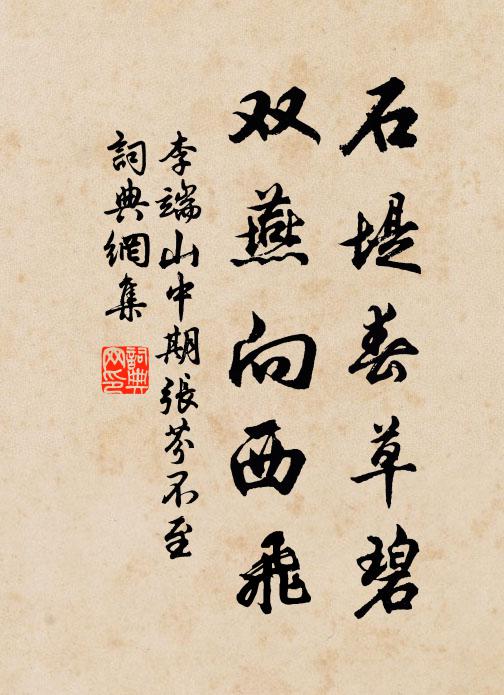 石堤春草碧
双燕向西飛
李端山中期張芬不至
詞典網集
詞典网印